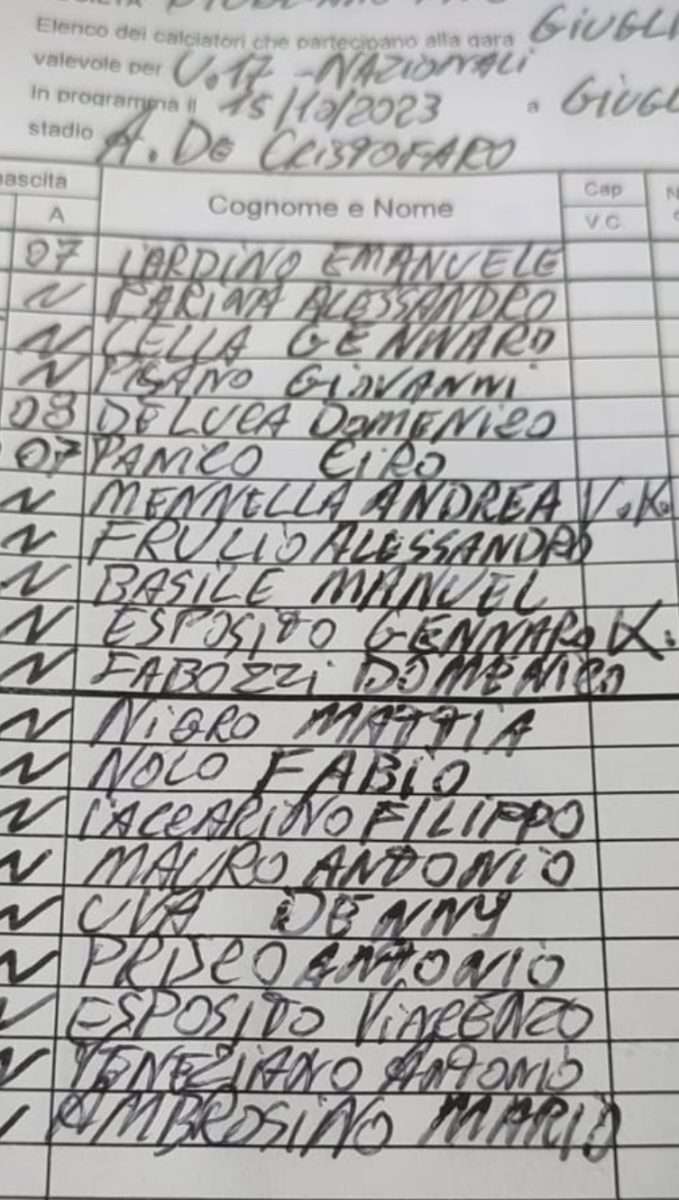 Elenco dei calciatori che partecipano alla gara GIUGLI
valevole per U.17 - NAZIONALI
In programma il 15/10/2023 a GIUGL
stadio A. DE CRISTOFARO
nascita Cognome e Nome Cap
A V.C.
07 IARDINO EMANUELE
N FARINA ALESSANDRO
N CELLA GENNARO
N PISANO GIOVANNI
08 DE LUCA DOMENICO
07 PANICO CIRO
N MENNELLA ANDREA V.K.
N FRULIO ALESSANDRO
N BASILE MANUEL
N ESPOSITO GENNARO K.
N FABOZZI DOMENICO
N NIGRO MATTIA
N NOLO FABIO
N IACCARINO FILIPPO
N MAURO ANTONIO
N UVA DENNY
N ANTONIO
N ESPOSITO
N VENEZIANO ANTONIO
AMBROSINO MARIO